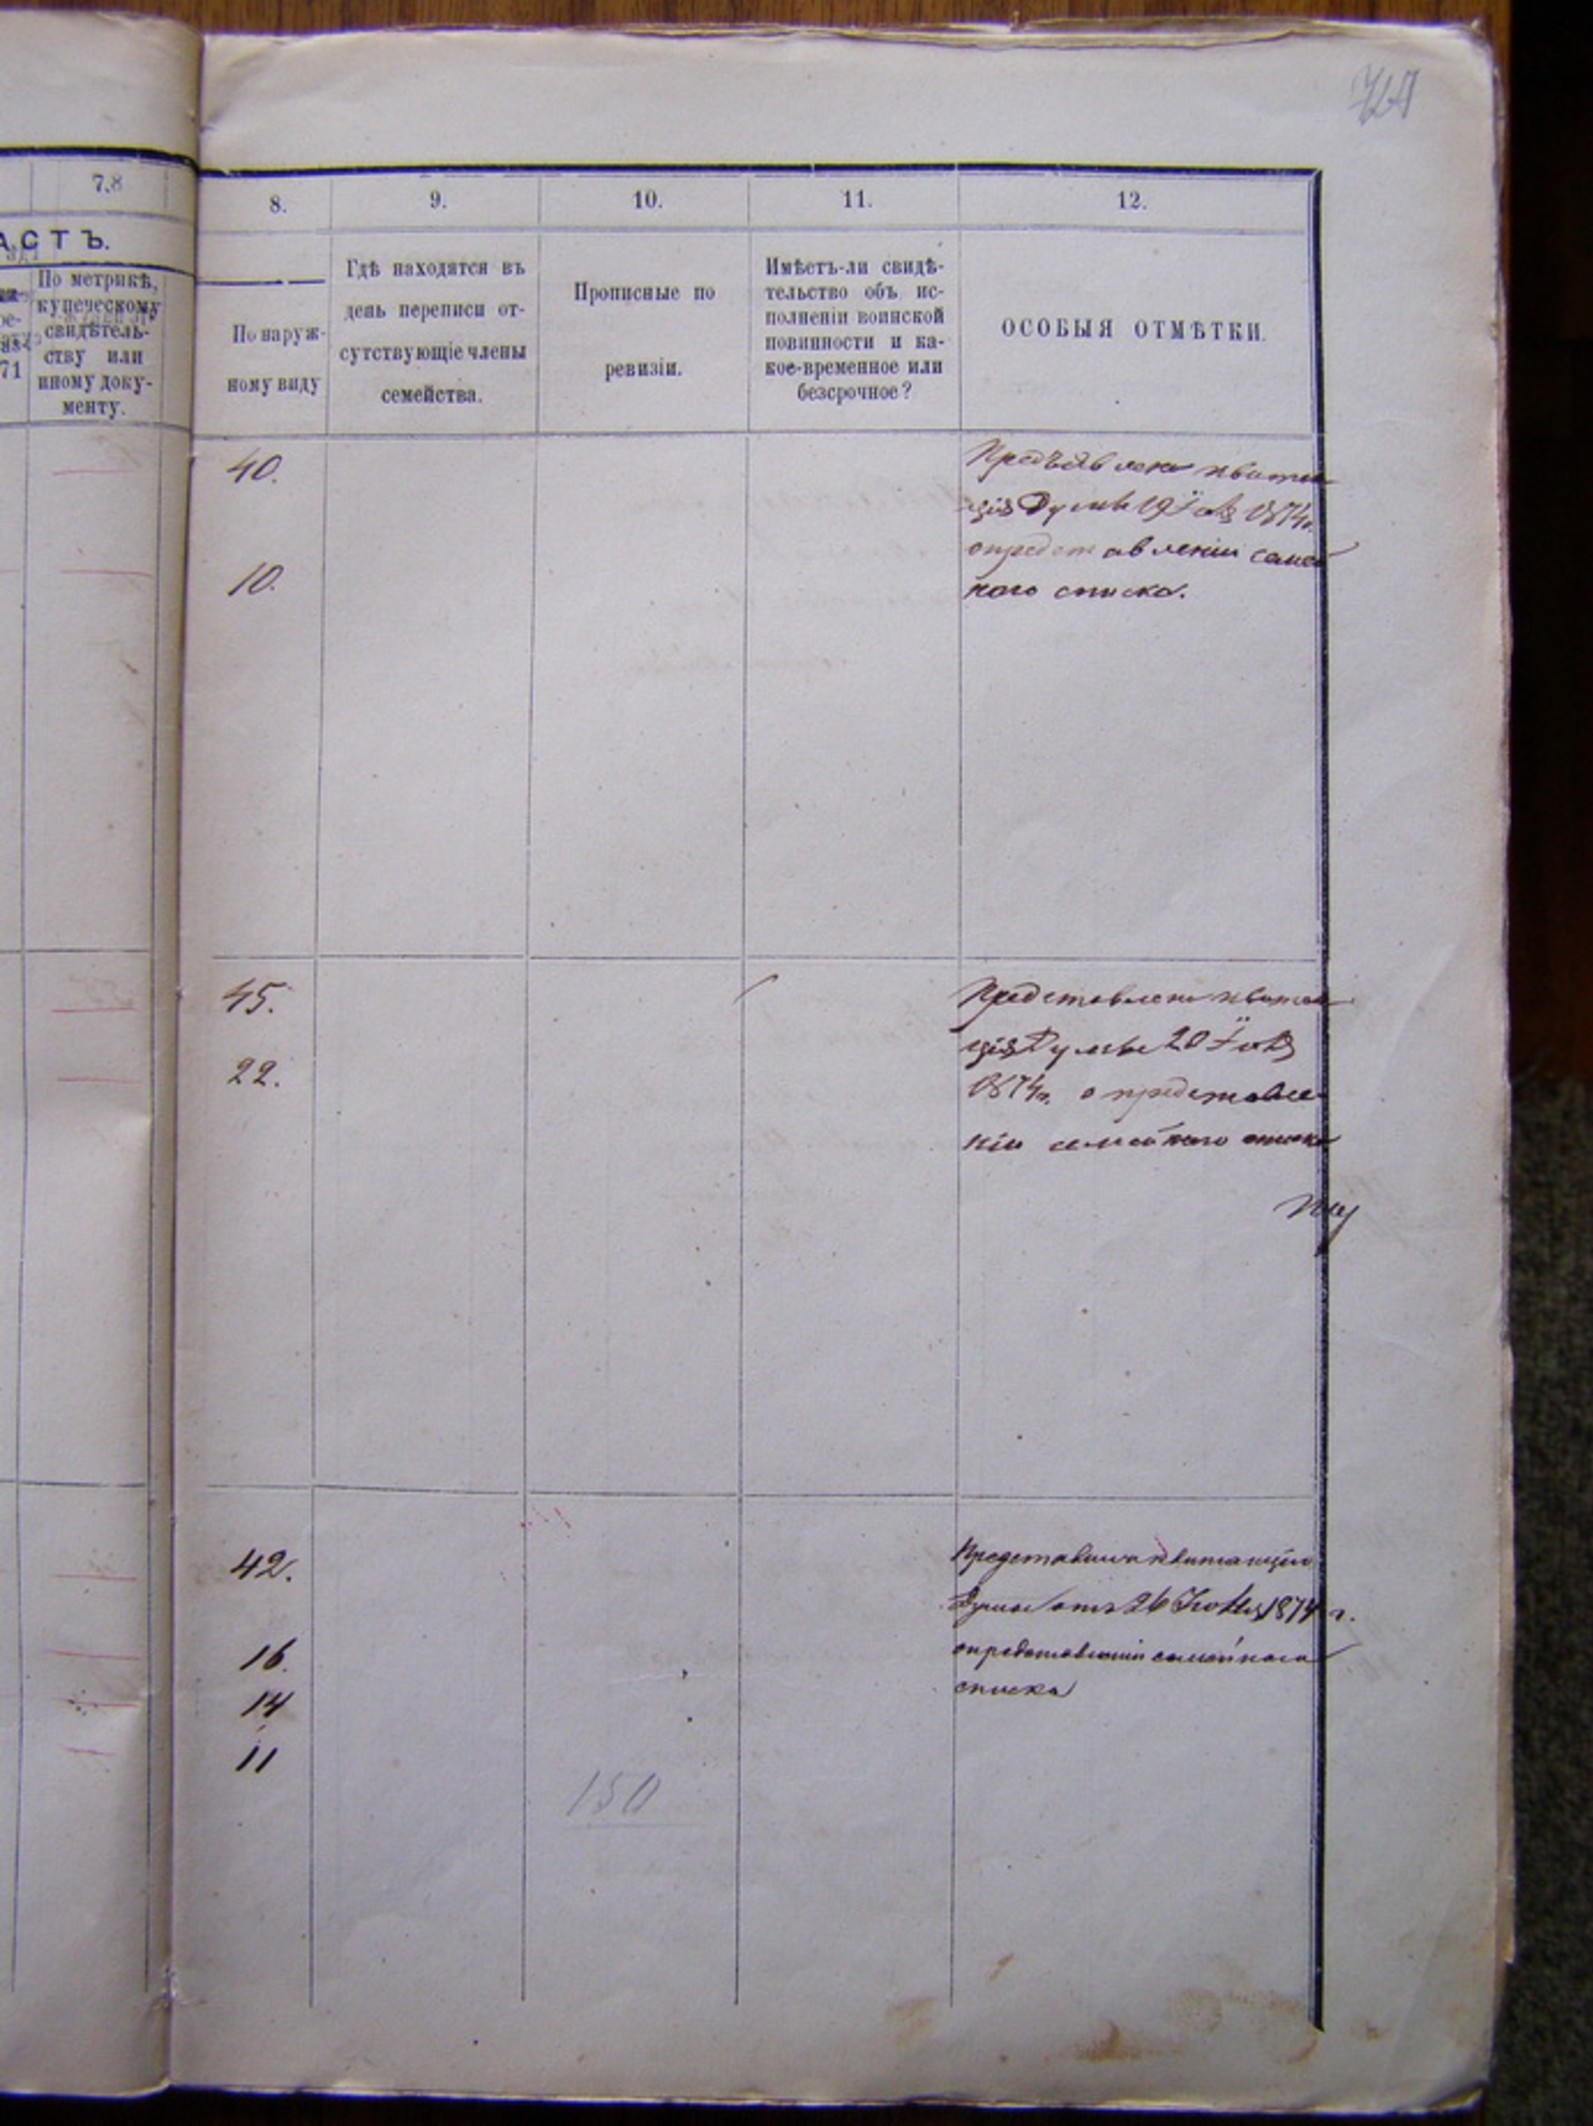 7.8
АСТЪ.
По метрикѣ,
купеческому
свидѣтель-
ству или
иному доку-
менту.
71
8.
9.
10.
11.
12.
По наруж-
ному виду
Гдѣ находятся въ
день переписи от-
сутствующіе члены
семейства.
Прописные по
ревизіи.
Имѣетъ-ли свидѣ-
тельство объ ис-
полненіи воинской
повинности и ка-
кое-временное или
безсрочное?
ОСОБЫЯ ОТМѢТКИ.
40.
10.
Предъявлена квитан
ція Думы 19 1874г.
о представленіи семей
наго списка.
45.
22.
Представлена квитан
ція Думы 20
1874г. о представле
ніи семейнаго списка
42.
16.
14
11
150
Представила квитанцію
Думы отъ 26 1874 г.
о представленіи семейнаго
списка